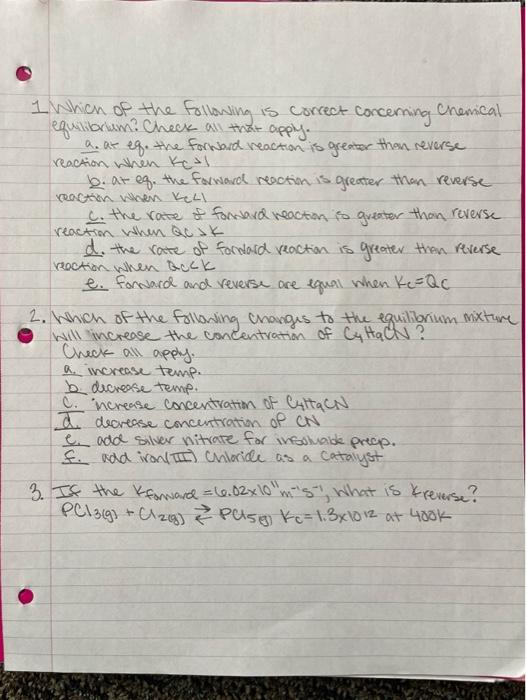 1. Which of the following is correct concerning chemical
equilibrium? Check all that apply.
a. at eq. the forward reaction is greater than reverse
reaction when Kc>1
b. at eq. the forward reaction is greater than reverse
reaction when Kc<1
c. the rate of forward reaction is greater than reverse
reaction when Qc>K
d. the rate of forward reaction is greater than reverse
reaction when Qc<K
e. forward and reverse are equal when Kc=Qc
2. Which of the following changes to the equilibrium mixture
will increase the concentration of C4H9CN?
Check all apply.
a. increase temp.
b. decrease temp.
c. increase concentration of C4H9CN
d. decrease concentration of CN
e. add silver nitrate for insoluable precp.
f. add iron(III) chloride as a catalyst
3. If the Kforward = 6.02x10^11 m^-1 s^-1, what is Kreverse?
PCl3(g) + Cl2(g) ⇄ PCl5(g) Kc=1.3x10^12 at 400K